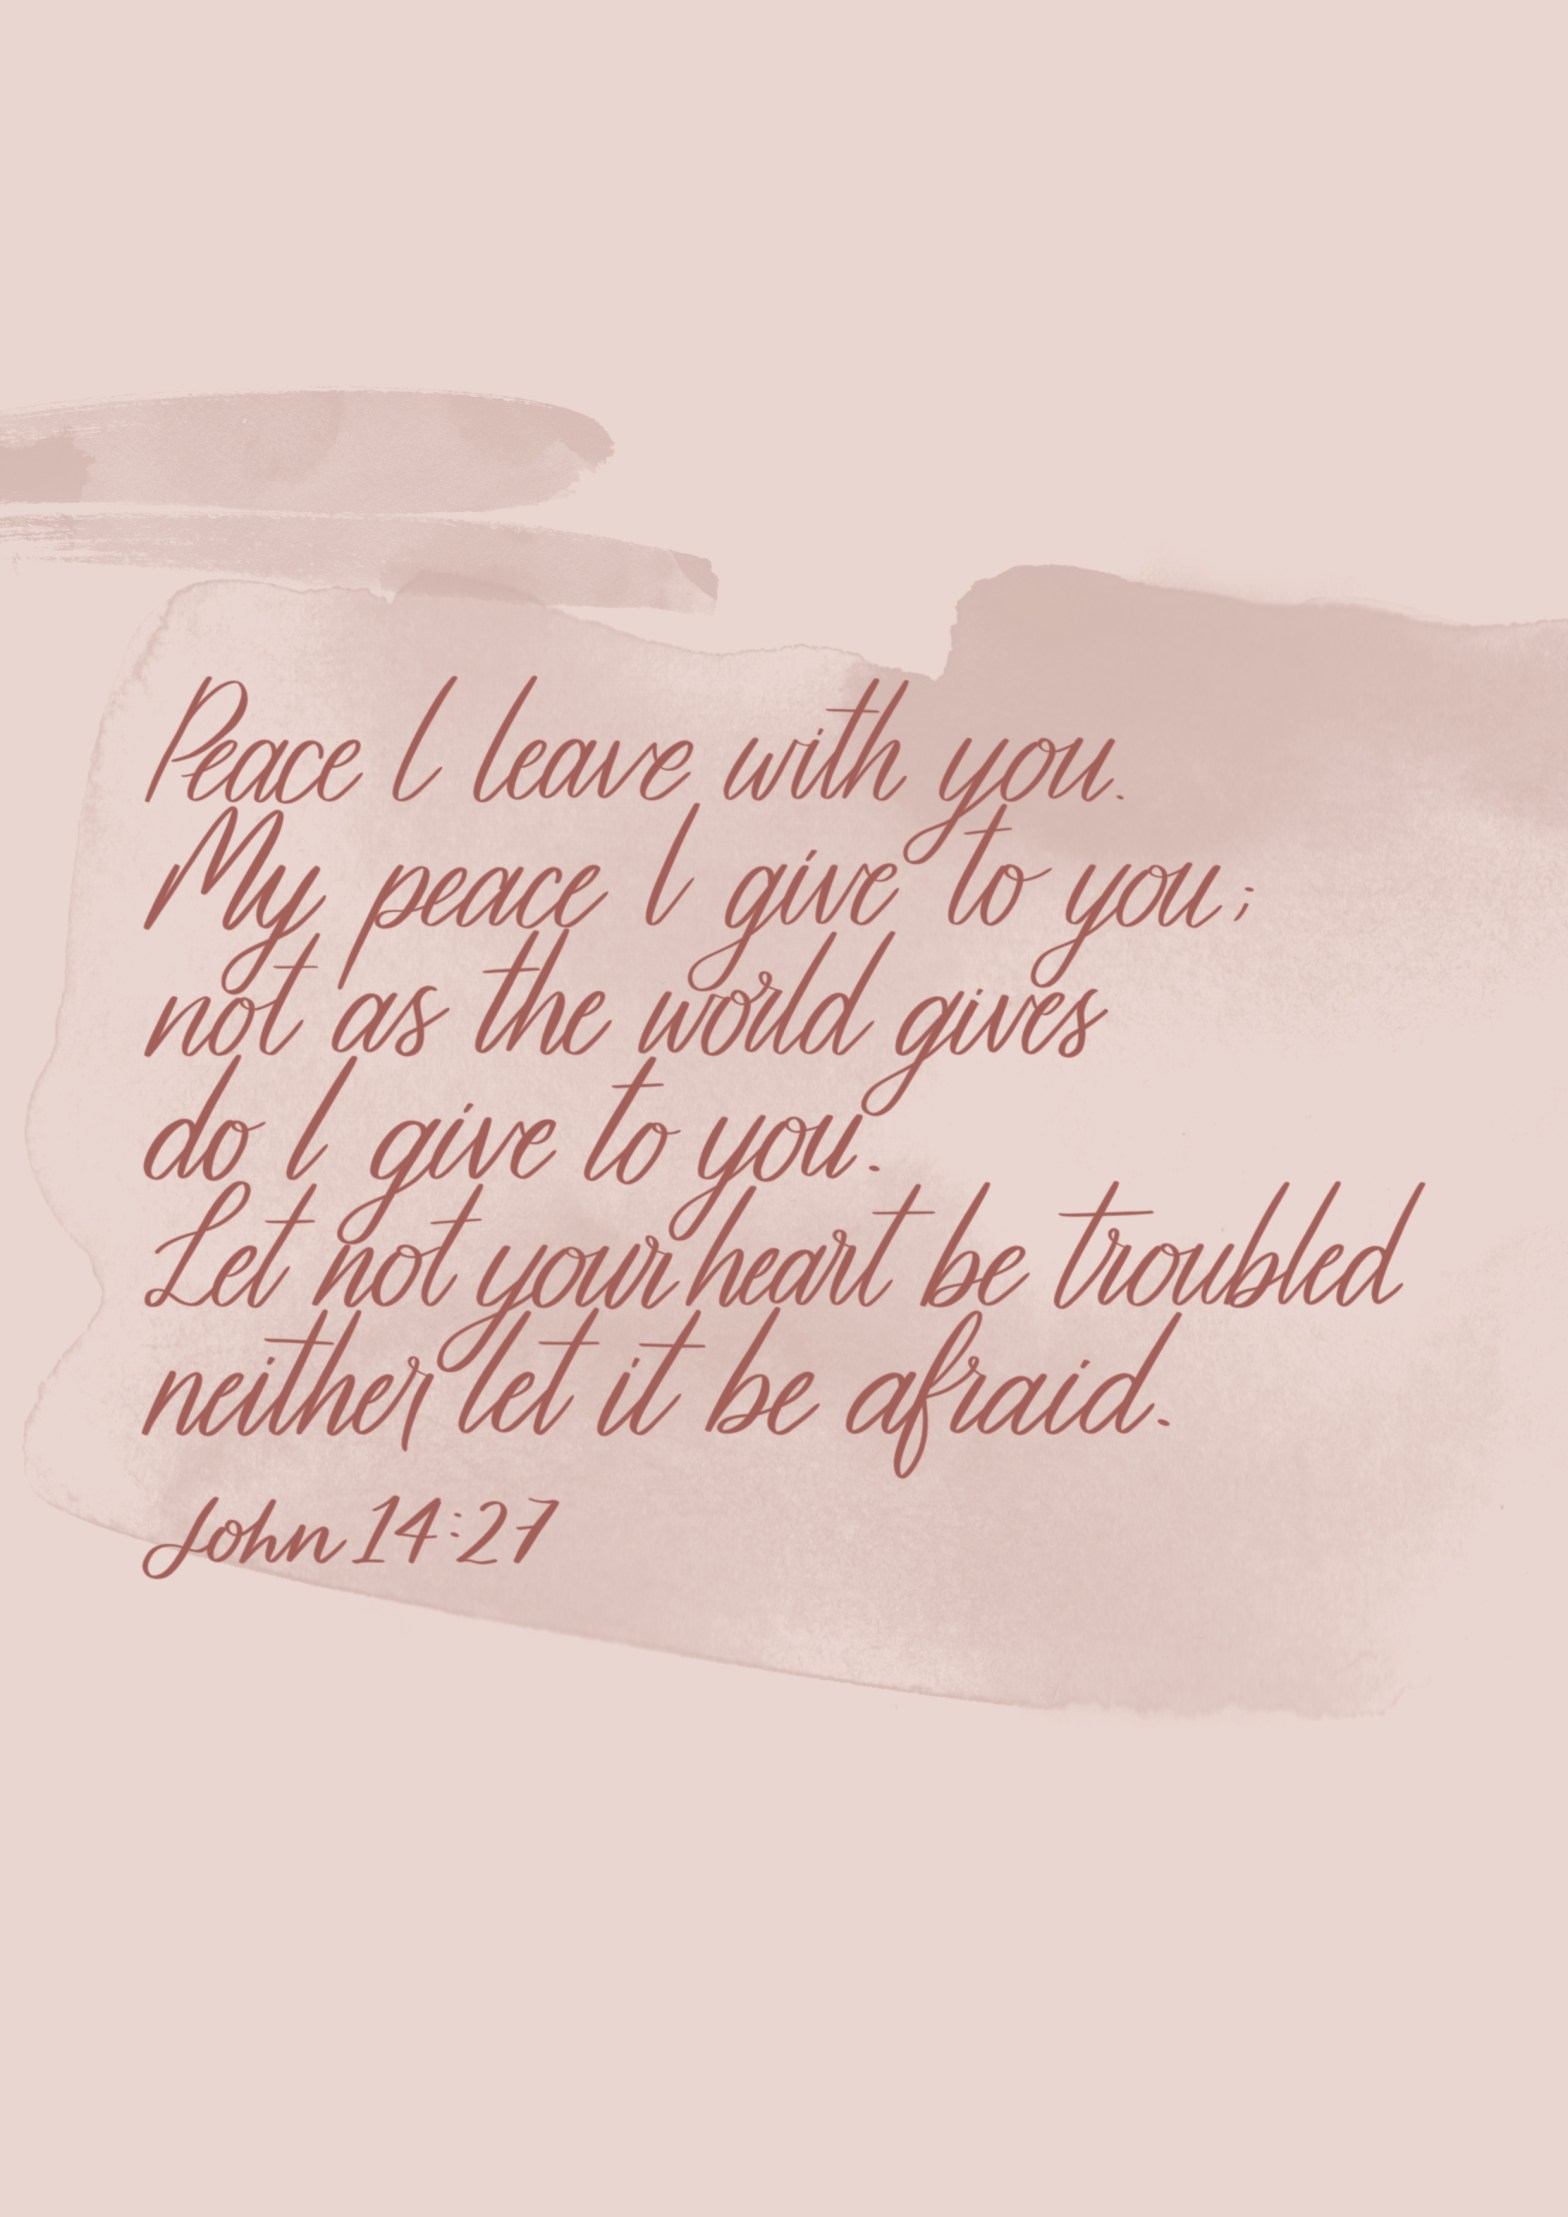 Peace I leave with you.
My peace I give to you;
not as the world gives
do I give to you.
Let not your heart be troubled
neither let it be afraid.
John 14:27